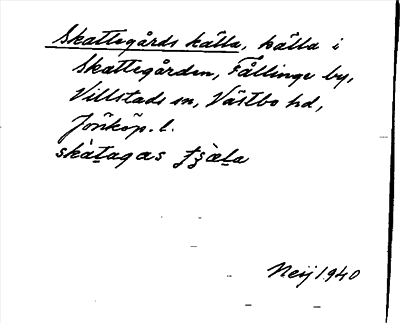 Skattegårds källa, källa i
Skattegården, Fållinge by,
Villstads sn, Västbo hd,
Jönköp. l.
skàtagas
Neij 1940